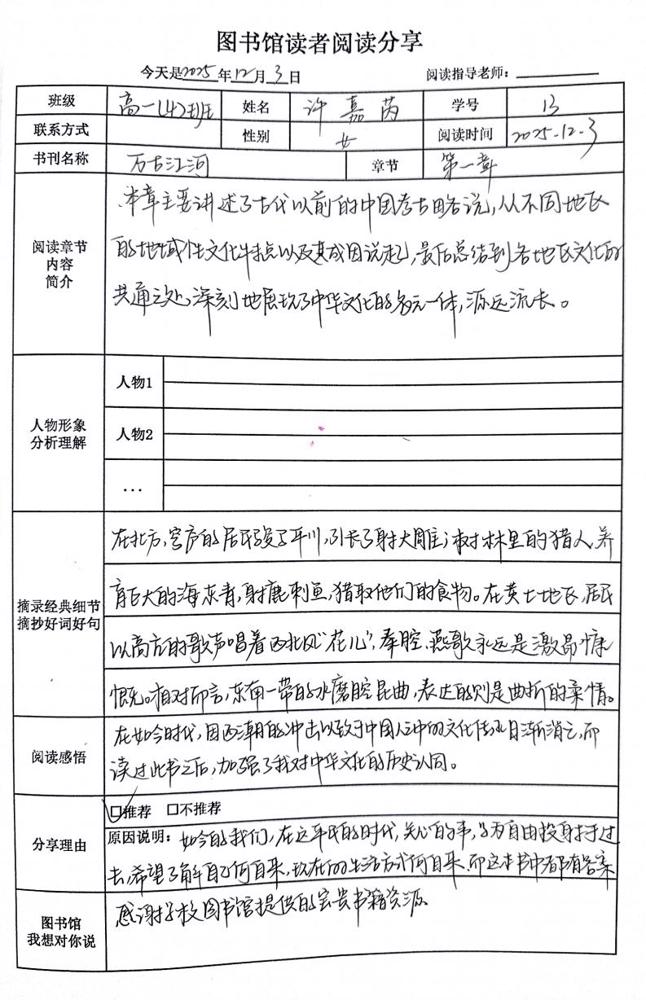 图书馆读者阅读分享
今天是2025年12月3日 阅读指导老师：
班级 高一(4)班 姓名 许嘉芮 学号 13
联系方式 性别 女 阅读时间 2025.12.3
书刊名称 万古江河 章节 第一章
阅读章节
内容
简介
本章主要讲述了古代以前的中国考古略说，从不同地区
的地域性文化特点以及其成因说起，最后总结到各地区文化的
共通之处，深刻地展现了中华文化的多元一体，源远流长。
人物形象
分析理解
人物1
人物2
…
摘录经典细节
摘抄好词好句
在北方，穹庐的居民 了平川， 了射大雕；树林里的猎人，养
育巨大的海东青，射鹿刺鱼，猎取他们的食物。在黄土地区，居民
以高亢的歌声唱着西北风“花儿”，秦腔、燕歌永远是激昂慷
慨。相对而言，东南一带的水磨腔昆曲，表达的则是曲折的柔情。
阅读感悟
在如今时代，因西潮的冲击以致于中国人心中的文化传 日渐消亡，而
读过此书之后，加强了我对中华文化的历史认同。
分享理由
推荐 不推荐
原因说明：如今的我们，在这 的时代，关心的事， 为自由投身于过
去，希望了解自己何自来，现在的生活方式何自来，而这本书中都有答案
图书馆
我想对你说
感谢学校图书馆提供的宝贵书籍资源